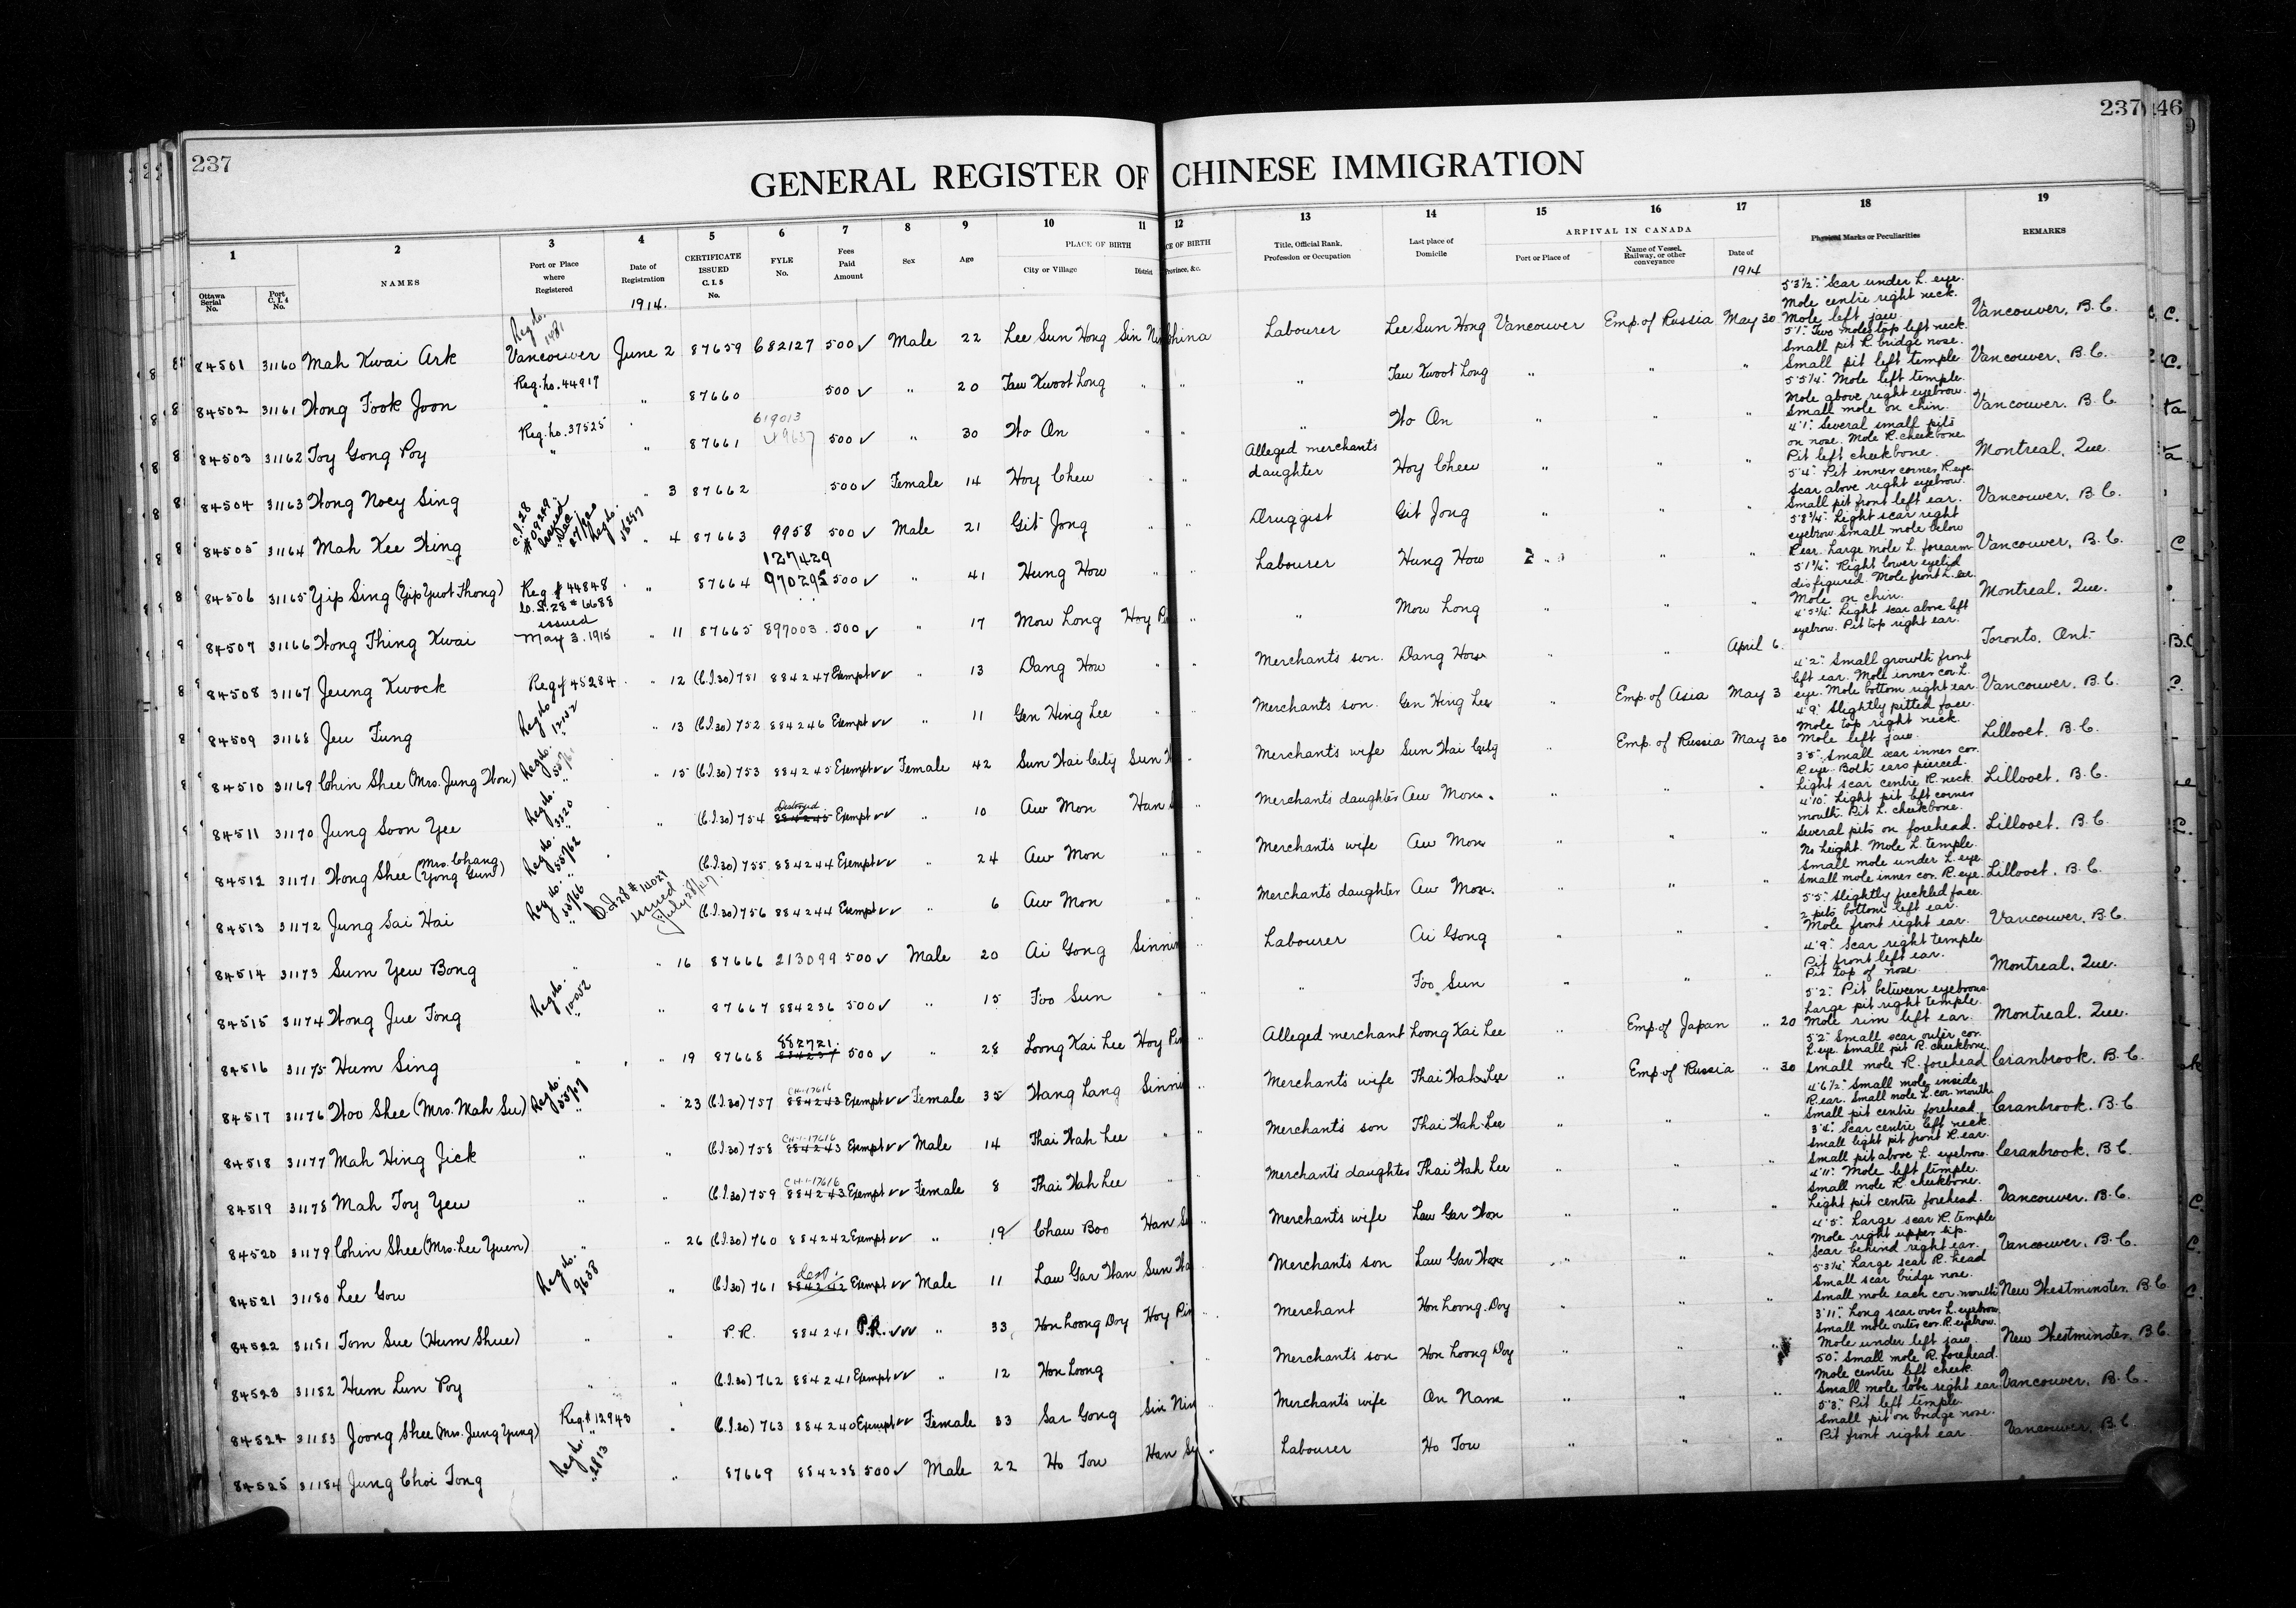 237
237
46
GENERAL REGISTER OF CHINESE IMMIGRATION
1 2 3 4 5 6 7 8 9 10 11 12 13 14 15 16 17 18 19
Ottawa Serial No. Port C. I. 4 No. NAMES Port or Place where Registered Date of Registration CERTIFICATE ISSUED C. I. 5 No. FYLE No. Fees Paid Amount Sex Age PLACE OF BIRTH City or Village District Province, &c. Title, Official Rank, Profession or Occupation Last place of Domicile ARRIVAL IN CANADA Port or Place of Name of Vessel, Railway, or other conveyance Date of Physical Marks or Peculiarities REMARKS
1914. 1914
84501 31160 Mah Kwai Ark Reg. No. 1481 Vancouver June 2 87659 682127 500 ✓ Male 22 Lee Sun Hong Sin Nin China Labourer Lee Sun Hong Vancouver Emp. of Russia May 30 5'3½". Scar under L. eye. Mole centre right neck. Mole left jaw. Vancouver, B.C.
84502 31161 Wong Fook Joon Reg. No. 44917 " " 87660 500 ✓ " 20 Taw Kwoot Long " " " Taw Kwoot Long " " " 5'1". Two moles top left neck. Small pit R. bridge nose. Small pit left temple. Vancouver, B.C.
84503 31162 Toy Gong Poy Reg. No. 37525 " " 87661 619013 500 ✓ " 30 Wo On " " " Wo On " " " 5'5¼". Mole left temple. Mole above right eyebrow. Small mole on chin. Vancouver, B.C.
84504 31163 Wong Noey Sing " 3 87662 500 ✓ Female 14 Hoy Chew " " Alleged merchants daughter Hoy Chew " " " 4'1". Several small pits on nose. Mole R. cheekbone. Pit left cheekbone. Montreal, Que.
84505 31164 Mah Kee Hing C.I.28 issued Dec 27/20 Reg. No. " 4 87663 9958 500 ✓ Male 21 Git Jong " " Druggist Git Jong " " " 5'4". Pit inner corner R. eye. Scar above right eyebrow. Small pit front left ear. Vancouver, B.C.
84506 31165 Yip Sing (Yip Yuot Thong) Reg # 44848 " 87664 127429 970295 500 ✓ " 41 Hung How " " Labourer Hung How " " " 5'8¾". Light scar right eyebrow. Small mole below R. ear. Large mole L. forearm. Vancouver, B.C.
84507 31166 Wong Thing Kwai C.I.28 # 6688 issued May 3. 1915 " 11 87665 897003 500 ✓ " 17 Mow Long Hoy " " Mow Long " " " 5'1¾". Right lower eyelid disfigured. Mole front L. ear. Mole on chin. Montreal, Que.
84508 31167 Jeung Kwock Reg # 45284 " 12 (C.I.30) 751 884247 Exempt ✓✓ " 13 Dang How " " Merchants son. Dang How " " April 6. 4'5¾". Light scar above left eyebrow. Pit top right ear. Toronto, Ont.
84509 31168 Jew Fung Reg No 12152 " 13 (C.I.30) 752 884246 Exempt ✓✓ " 11 Gen Hing Lee " " Merchants son. Gen Hing Lee " Emp. of Asia May 3 4'2". Small growth front left ear. Mole inner cor. L. eye. Mole bottom right ear. Vancouver, B.C.
84510 31169 Chin Shee (Mrs. Jung Won) Reg No. " 15 (C.I.30) 753 884245 Exempt ✓✓ Female 42 Sun Wai City Sun " Merchants wife Sun Wai City " Emp. of Russia May 30 4'9". Slightly pitted face. Mole top right neck. Mole left jaw. Lillooet, B.C.
84511 31170 Jung Soon Yee Reg No. 3320 " " (C.I.30) 754 Destroyed 884245 Exempt ✓✓ " 10 Aw Mon Han " Merchants daughter Aw Mon " " " 3'5". Small scar inner cor. R. eye. Both ears pierced. Light scar centre R. neck. Lillooet, B.C.
84512 31171 Wong Shee (Mrs. Chang Yong Gun) Reg No. 55762 " (C.I.30) 755 884244 Exempt ✓✓ " 24 Aw Mon " " Merchants wife Aw Mon " " " 4'10". Light pit left corner mouth. Pit L. cheekbone. Several pits on forehead. Lillooet, B.C.
84513 31172 Jung Sai Hai Reg No. 55766 " C.I.28 # 14021 issued July 28/27 (C.I.30) 756 884244 Exempt ✓✓ " 6 Aw Mon " " Merchants daughter Aw Mon. " " " No height. Mole L. temple. Small mole under L. eye. Small mole inner cor. R. eye. Lillooet, B.C.
84514 31173 Sum Yew Bong " " 16 87666 213099 500 ✓ Male 20 Ai Gong Sinnin " Labourer Ai Gong " " " 5'5". Slightly freckled face. 2 pits bottom left ear. Mole front right ear. Vancouver, B.C.
84515 31174 Wong Jue Tong Reg No. 10052 " " 87667 884236 500 ✓ " 15 Foo Sun " " " Foo Sun " " " 4'9". Scar right temple. Pit front left ear. Pit top of nose. Montreal, Que.
84516 31175 Hum Sing " " 19 87668 882721 884237 500 ✓ " 28 Loong Kai Lee Hoy Pin " Alleged merchant Loong Kai Lee " Emp. of Japan " 20 5'2". Pit between eyebrows. Large pit right temple. Mole rim left ear. Montreal, Que.
84517 31176 Woo Shee (Mrs. Mah Su) Reg No. 55767 " " 23 (C.I.30) 757 CH-1-17616 884243 Exempt ✓✓ Female 35 Wang Lang Sinnin " Merchants wife Thai Wah Lee " Emp. of Russia " 30 5'2". Small scar outer cor. L. eye. Small pit R. cheekbone. Small mole R. forehead. Cranbrook, B.C.
84518 31177 Mah Hing Jick " " (C.I.30) 758 CH-1-17616 884243 Exempt ✓✓ Male 14 Thai Wah Lee " " Merchants son Thai Wah Lee " " " 4'6½". Small mole inside R. ear. Small mole L. cor. mouth. Small pit centre forehead. Cranbrook, B.C.
84519 31178 Mah Toy Yew " " (C.I.30) 759 CH-1-17616 884243 Exempt ✓✓ Female 8 Thai Wah Lee " " Merchants daughter Thai Wah Lee " " " 3'4". Scar centre left neck. Small light pit front R. ear. Small pit above L. eyebrow. Cranbrook, B.C.
84520 31179 Chin Shee (Mrs. Lee Yuen) " " 26 (C.I.30) 760 884242 Exempt ✓✓ " 19 Chaw Boo Han " Merchants wife Law Gar Won " " " 4'11". Mole left temple. Small mole R. cheekbone. Light pit centre forehead. Vancouver, B.C.
84521 31180 Lee Gow Reg No. 9638 " (C.I.30) 761 Dest. 884242 Exempt ✓✓ Male 11 Law Gar Wan Sun " Merchants son Law Gar " " " 4'5". Large scar R. temple. Mole right upper lip. Scar behind right ear. Vancouver, B.C.
84522 31181 Tom Sue (Hum Shue) " " P.R. 884241 P.R. ✓✓✓ " 33 Hon Loong Doy Hoy Pin " Merchant Hon Loong Doy " " " 5'3¼". Large scar R. head. Small scar bridge nose. Small mole each cor. mouth. New Westminster, B.C.
84523 31182 Hum Lun Poy " " (C.I.30) 762 884241 Exempt ✓✓ " 12 Hon Loong " " Merchants son Hon Loong Doy " " " 3'11". Long scar over L. eyebrow. Small mole outer cor. R. eyebrow. Mole under left jaw. New Westminster, B.C.
84524 31183 Joong Shee (Mrs. Jung Yung) Reg # 12943 " " (C.I.30) 763 884240 Exempt ✓✓ Female 33 Sar Gong Sin Nin " Merchants wife On Nam " " " 50". Small mole R. forehead. Mole centre left cheek. Small mole lobe right ear. Vancouver, B.C.
84525 31184 Jung Choi Tong Reg No. 2813 " " 87669 884238 500 ✓ Male 22 Ho Tow Han " Labourer Ho Tow " " " 5'3". Pit left temple. Small pit on bridge nose. Pit front right ear. Vancouver, B.C.